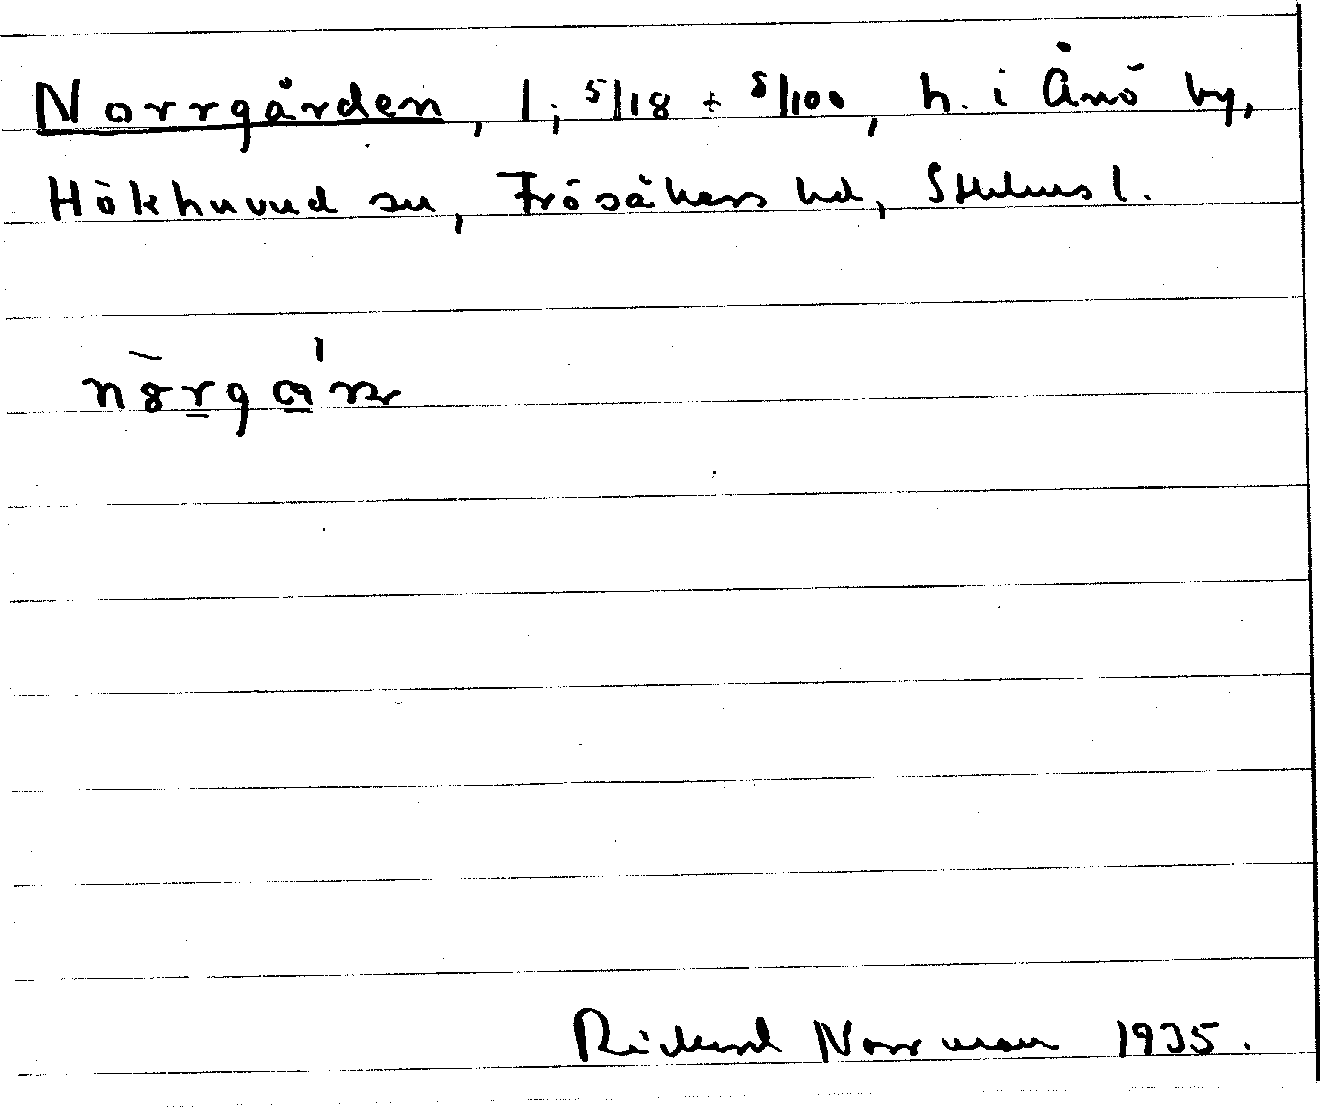 Norrgården, 1, 5/18 + 8/100, h. i Ånö by,
Hökhuvud sn, Frösåkers hd, Sthlms l.
Rickard Norrman 1935.